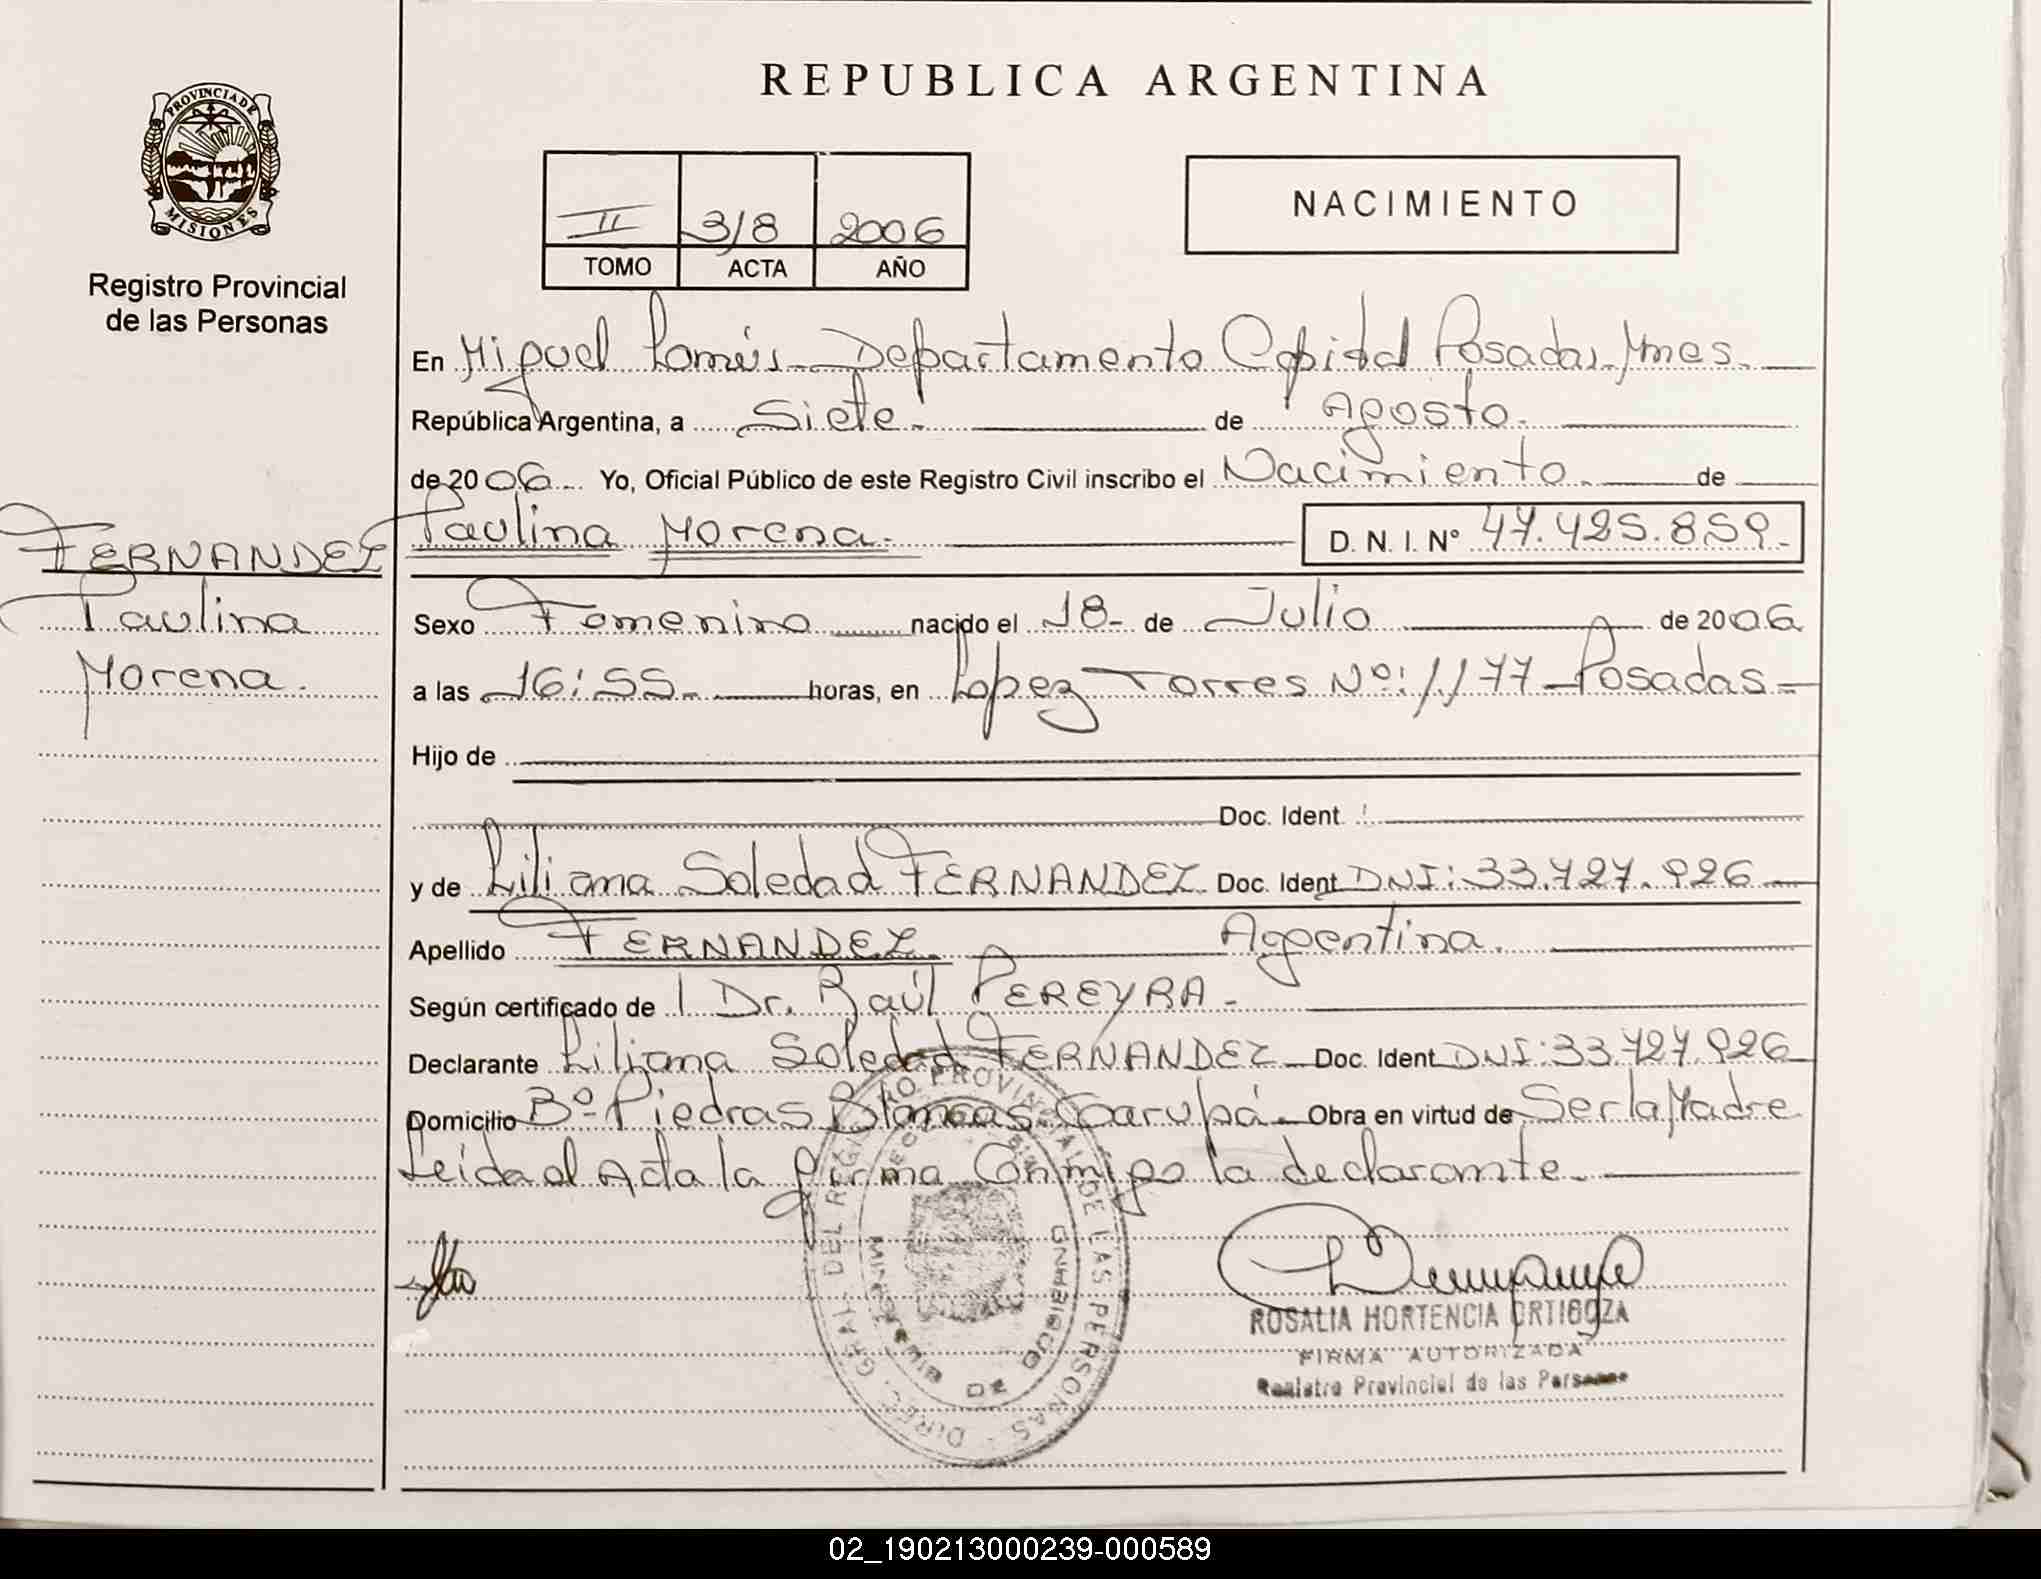 REPUBLICA ARGENTINA
PROVINCIA DE
MISIONES
Registro Provincial
de las Personas
II 3/8 2006
TOMO ACTA AÑO
NACIMIENTO
En Miguel Lanús - Departamento Capital Posadas Mnes.
República Argentina, a Siete. de Agosto.
de 2006 Yo, Oficial Público de este Registro Civil inscribo el Nacimiento. de
Paulina Morena. D. N. I. Nº 47.425.859-
FERNANDEZ
Paulina
Morena.
Sexo Femenino nacido el 18- de Julio de 2006
a las 16:55 horas, en Lopez Torres Nº: 1177 - Posadas -
Hijo de
Doc. Ident.
y de Liliana Soledad FERNANDEZ Doc. Ident DNI: 33.727.926
Apellido FERNANDEZ. Argentina.
Según certificado de Dr. Raúl PEREYRA -
Declarante Liliana Soledad FERNANDEZ - Doc. Ident DNI: 33.727.926
Domicilio Bº Piedras Blancas Garupá - Obra en virtud de Ser la Madre
Leida el Acta la firma Conmigo la declarante.
DIREC. GRAL. DEL REGISTRO PROVINCIAL DE LAS PERSONAS
MINISTERIO DE GOBIERNO
ROSALIA HORTENCIA ORTIGOZA
FIRMA AUTORIZADA
Registro Provincial de las Personas
02_190213000239-000589